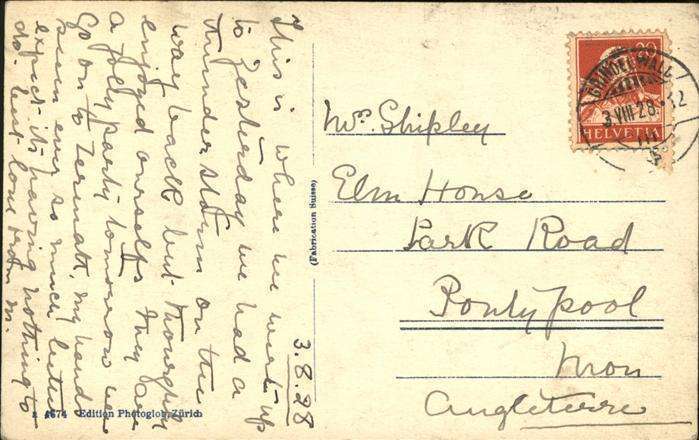 3.8.28
This is where we went up
to yesterday we had a
thunder storm on the
way back but thoroughly
enjoyed ourselves They are
a jolly party tomorrow we
go on to Zermatt, my hand
been ever so much better
expect its having nothing to
do. best love from M.
(Fabrication Suisse)
4674 Edition Photoglob, Zürich
20
HELVETIA
GRINDELWALD
3.VIII.28.-12
Mrs. Shipley
Elm House
Park Road
Pontypool
Mon
Angleterre